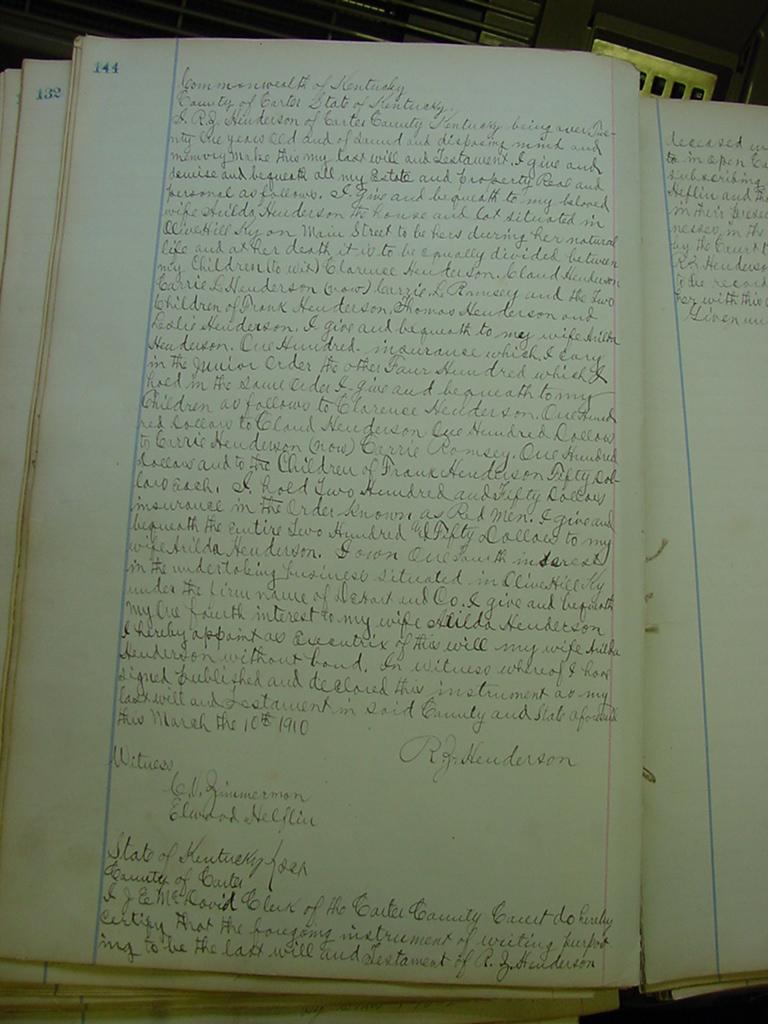 144
132
Commonwealth of Kentucky
County of Carter State of Kentucky.
I R.Z. Henderson of Carter County Kentucky being over Twe-
nty One years old and of sound and disposing mind and
memory make this my last will and Testament. I give and
devise and bequeath all my Estate and Property Real and
personal as follows. I give and bequeath to my beloved
wife Arilda Henderson the house and lot situated in
Olive Hill Ky on Main Street to be hers during her natural
life and at her death it is to be equally divided between
my Children (to wit) Clarence Henderson. Claud Henderson
Carrie L Henderson (now) Carrie L. Ramsey and the two
Children of Frank Henderson, Thomas Henderson and
Leslie Henderson. I give and bequeath to my wife Arilda
Henderson. One Hundred. insurance which I cary
in the Junior Order the other Four Hundred which I
hold in the same order I give and bequeath to my
Children as follows to Clarence Henderson. One Hund
red Dollars to Claud Henderson One Hundred Dollars
to Carrie Henderson (now) Carrie Ramsey. One Hundred
Dollars and to the Children of Frank Henderson Fifty Dol-
lars each. I hold Two Hundred and Fifty Dollars
insurance in the Order known as Red Men. I give and
bequeath the entire Two Hundred & Fifty Dollars to my
wife Arilda Henderson. I own One Fourth interest
in the undertaking business situated in Olive Hill Ky
under the Firm name of DeHart and Co. I give and bequeath
my One fourth interest to my wife Arilda Henderson
I hereby appoint as Executrix of this will my wife Arilda
Henderson without bond. In witness whereof I have
signed published and declared this instrument as my
last will and Testament in said County and State aforesaid
this March the 10th 1910
R.Z. Henderson
Witness
C.V. Zimmerman
Elwood Heflin
State of Kentucky
County of Carter
I J E McDavid Clerk of the Carter County Court do hereby
certify that the foregoing instrument of writing purport
ing to be the last will and Testament of R. Z. Henderson
deceased
to in open
subscribing
Heflin and
in their
nesses, in the
by the Court
R.Z. Henderson
to the record
with this
Given